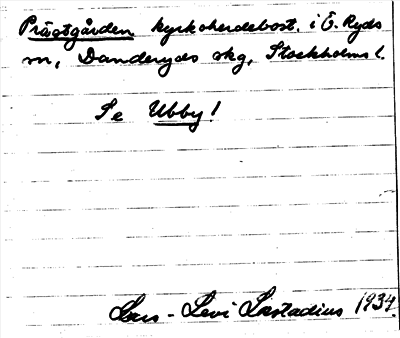 Prästgården kyrkoherdebost. i Ö. Ryds
sn, Danderyds skg, Stockholms l.
Se Ubby!
Lars-Levi Læstadius 1934.